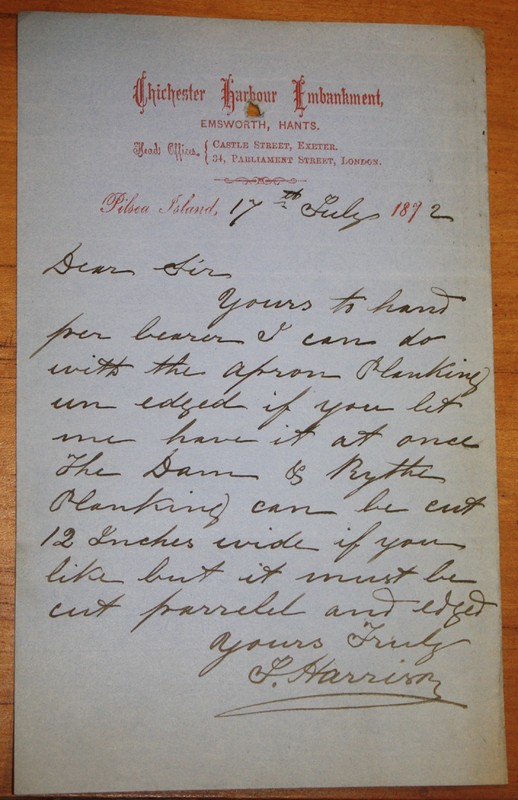 Chichester Harbour Embankment,
EMSWORTH, HANTS.
Head Offices, { CASTLE STREET, EXETER.
34, PARLIAMENT STREET, LONDON.
Pilsea Island, 17th July 1872
Dear Sir
Yours to hand
per bearer I can do
with the apron Planking
un edged if you let
me have it at once
The Dam & Rythe
Planking can be cut
12 Inches wide if you
like but it must be
cut parrelel and edged
Yours Truly
S. Harrison